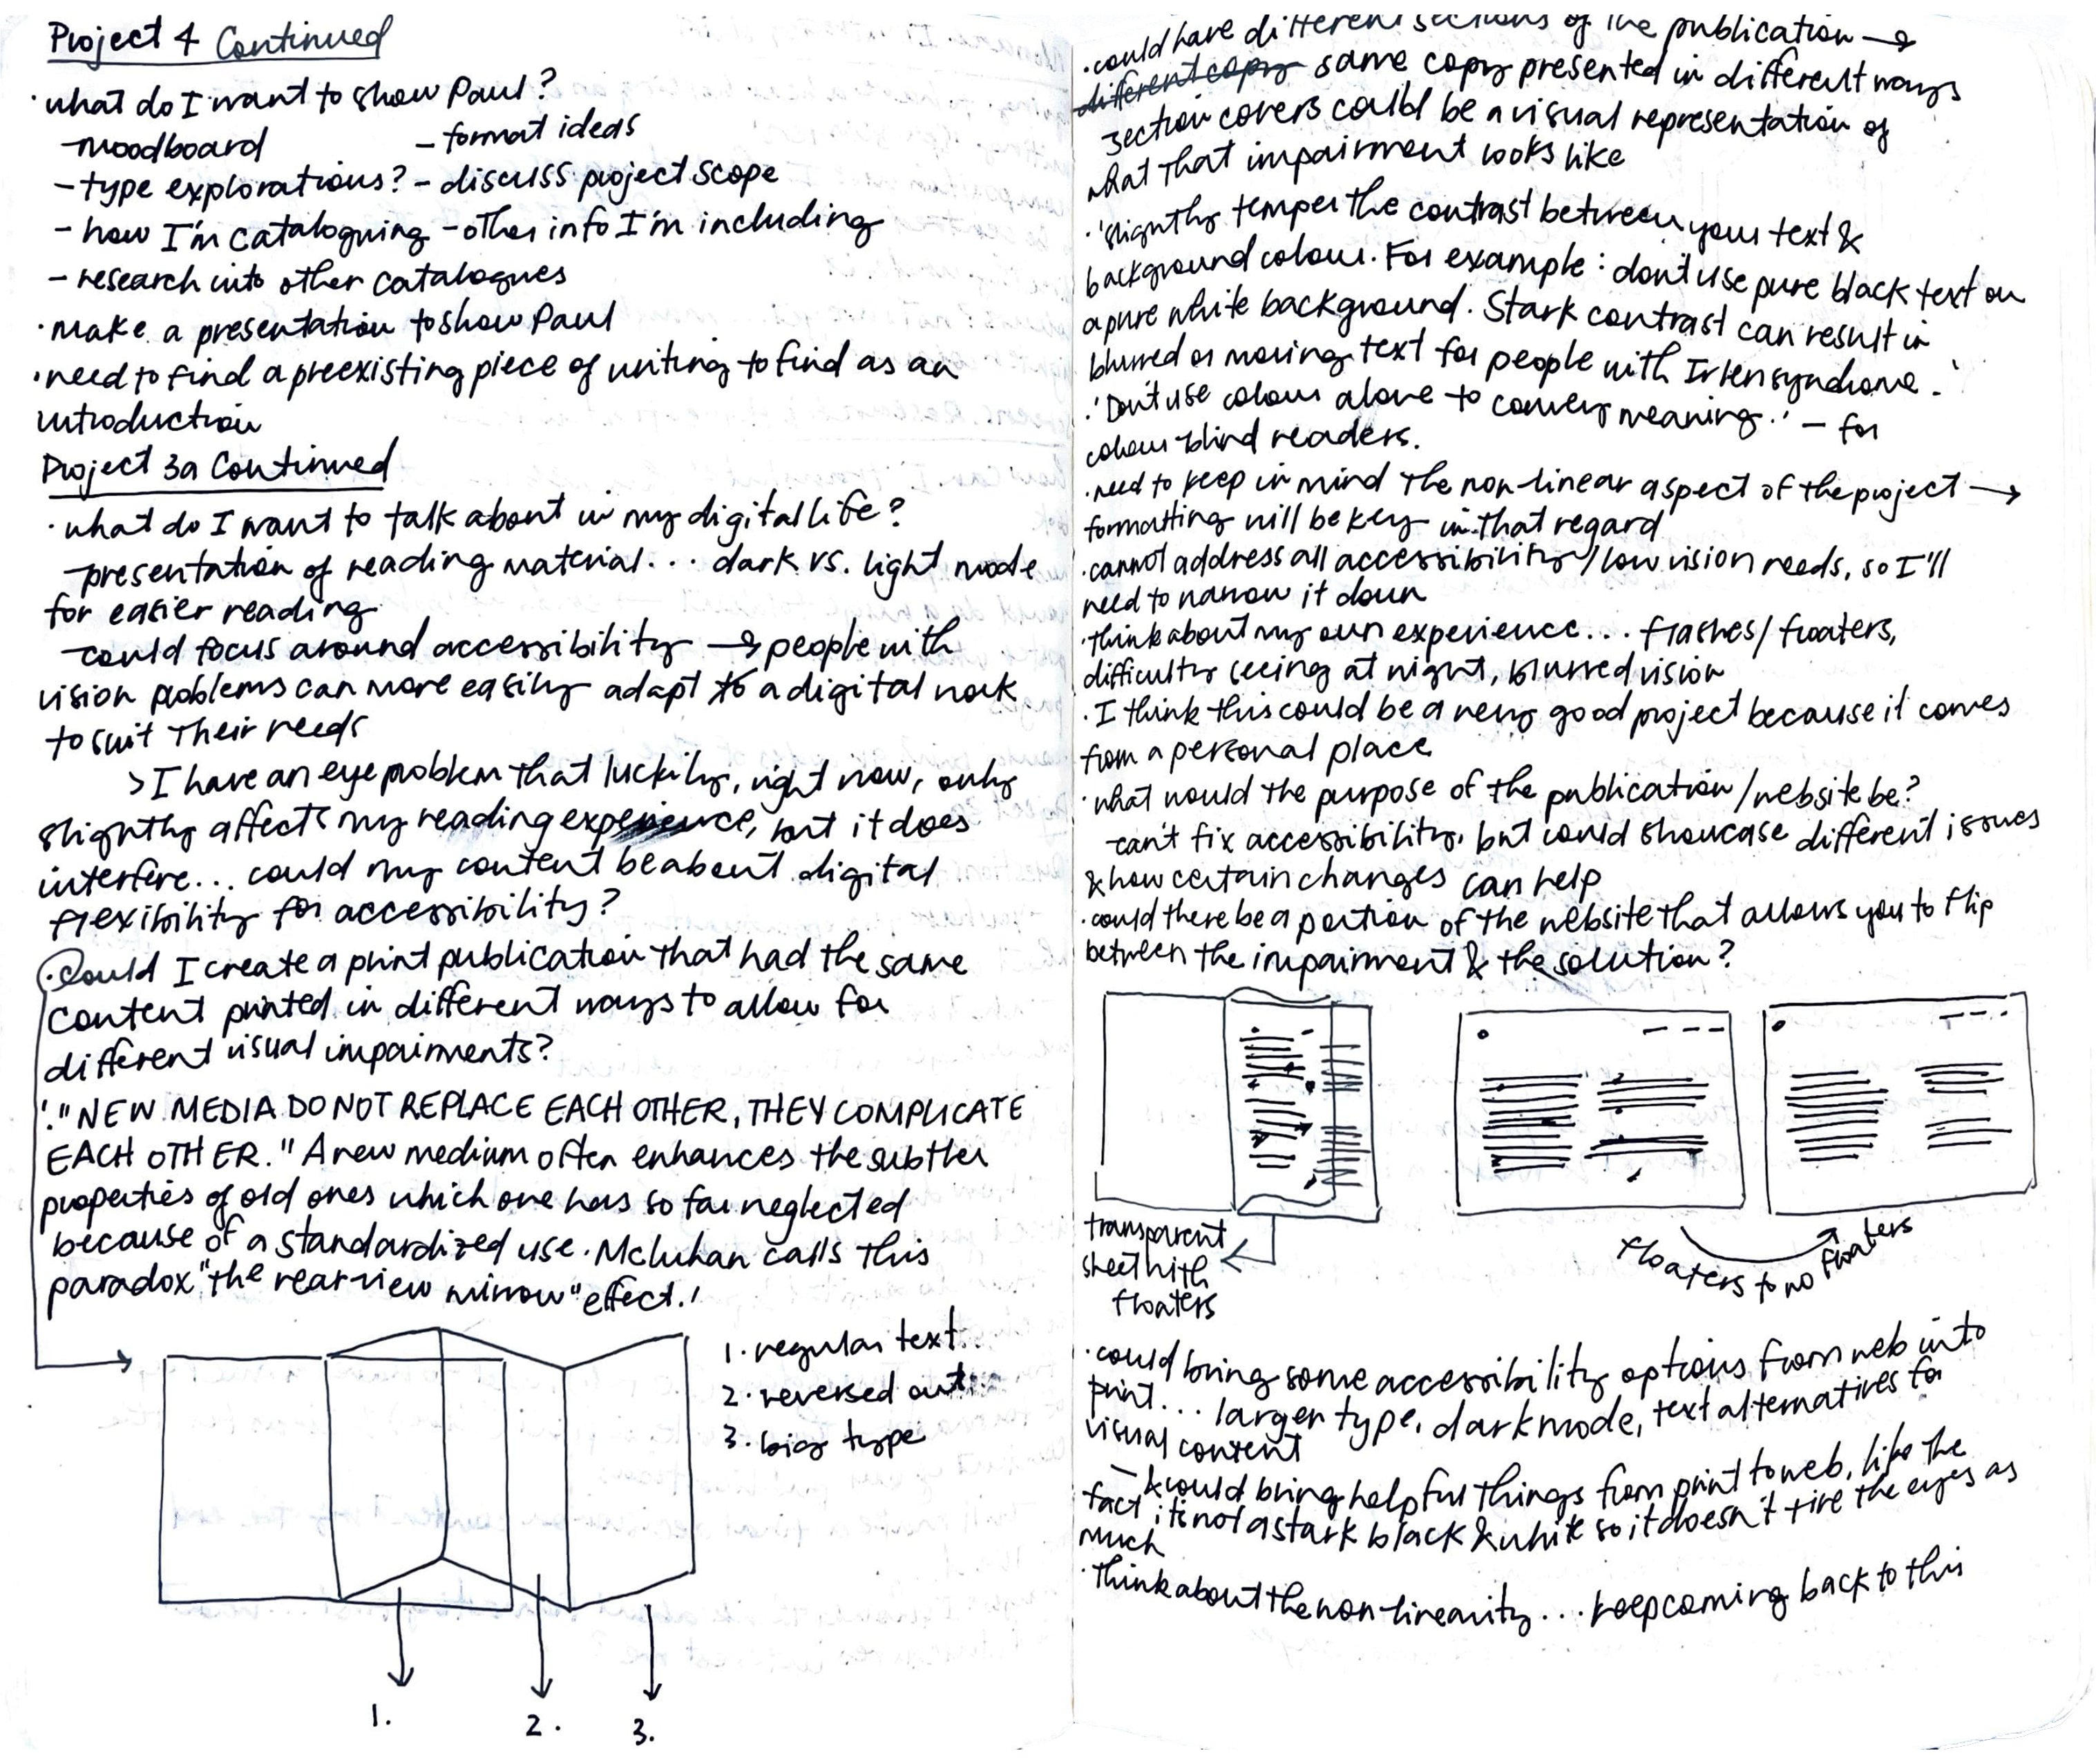 Project 4 Continued
· what do I want to show Paul?
- moodboard - format ideas
- type explorations? - discuss project scope
- how I'm cataloguing - other info I'm including
- research into other catalogues
· make a presentation to show Paul
· need to find a preexisting piece of writing to find as an
introduction
Project 3a Continued
· what do I want to talk about in my digital life?
- presentation of reading material... dark vs. light mode
for easier reading
- could focus around accessibility → people with
vision problems can more easily adapt to a digital work
to suit their needs
> I have an eye problem that luckily, right now, only
slightly affects my reading experience, but it does
interfere... could my content be about digital
flexibility for accessibility?
· Could I create a print publication that had the same
content printed in different ways to allow for
different visual impairments?
· '"NEW MEDIA DO NOT REPLACE EACH OTHER, THEY COMPLICATE
EACH OTHER." A new medium often enhances the subtler
properties of old ones which one has so far neglected
because of a standardized use. McLuhan calls this
paradox "the rear-view mirror" effect.'
1. regular text
2. reversed out
3. big type
1. 2. 3.
· could have different sections of the publication →
different copy same copy presented in different ways
section covers could be a visual representation of
what that impairment looks like
· 'slightly temper the contrast between your text &
background colour. For example: don't use pure black text on
a pure white background. Stark contrast can result in
blurred or moving text for people with Irlen syndrome.'
· 'Don't use colour alone to convey meaning.' - for
colour-blind readers.
· need to keep in mind the non-linear aspect of the project →
formatting will be key in that regard
· cannot address all accessibility/low vision needs, so I'll
need to narrow it down
· think about my own experience... flashes/floaters,
difficulty seeing at night, blurred vision
· I think this could be a very good project because it comes
from a personal place
· what would the purpose of the publication/website be?
- can't fix accessibility, but could showcase different issues
& how certain changes can help
· could there be a portion of the website that allows you to flip
between the impairment & the solution?
transparent
sheet with
floaters
floaters to no floaters
· could bring some accessibility options from web into
print... larger type, dark mode, text alternatives for
visual content
- & could bring helpful things from print to web, like the
fact it's not a stark black & white so it doesn't tire the eyes as
much
· Think about the non-linearity... keep coming back to this